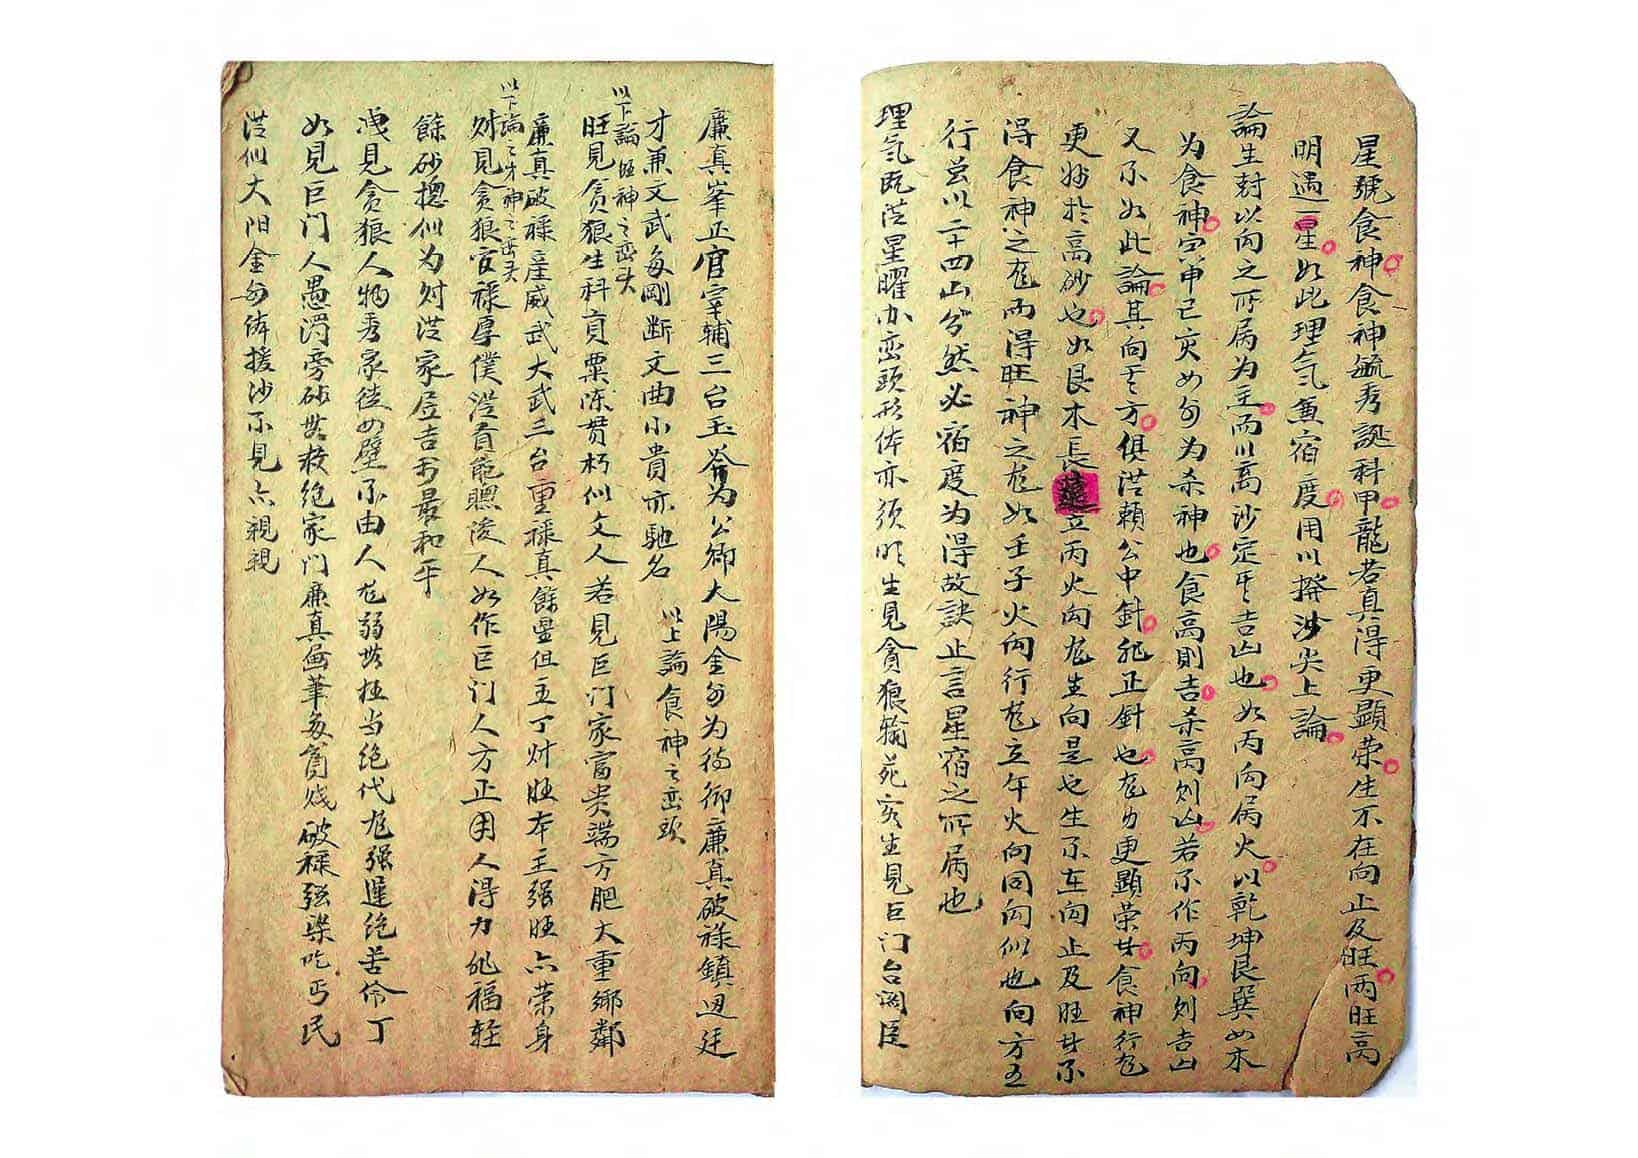 星號食神食神毓秀誕科甲龍若真得更顯荣生不在向止及旺丙旺高
明遇一星如此理气兼宿度用以撥沙尖上論
論生封以向之所属为主而以高沙定其吉凶也如丙向属火以乾坤艮巽如木
为食神寅甲己亥如为杀神也食高則吉杀高则凶若不作丙向则吉凶
又不如此論其向于方俱從賴公中針非正針也龙力更顯荣甘食神行龙
更妙於高砂也如艮木長立丙火向龙生向是也生不在向止及旺甘不
得食神之龙而得旺神之龙如壬子火向行龙立午火向同向似也向方五
行並以二十四山分然必宿度为得故訣止言星宿之所属也
理气既從星曜办峦頭形体亦须明生見貪狼翰苑客生見巨门台阁臣
廉真峯正官宰輔三台玉為公卿大陽金分为待御廉真破禄鎮边廷
才兼文武多剛断文曲小貴亦馳名
以上論食神之峦頭
以下論旺神之峦头
旺見貪狼生科貢粟陈贯朽似文人若見巨门家富贵端方肥大重鄉鄰
廉真破禄産威武大武三台重禄真餘星但主丁财旺本主强旺六荣身
以下論之才神之峦头
财見貪狼官禄厚僕從貢能聰浚人如作巨门人方正用人得力兆福轻
餘砂揔似为财從家居吉利最和平
洩見貪狼人物秀家徒四壁不由人龙弱世枉当绝代龙强進绝苦伶丁
如見巨门人愚濁旁砂世枚绝家门廉真畵筆多貧贱破禄强樑吃丐民
從似大阳金分体援沙不見六親親